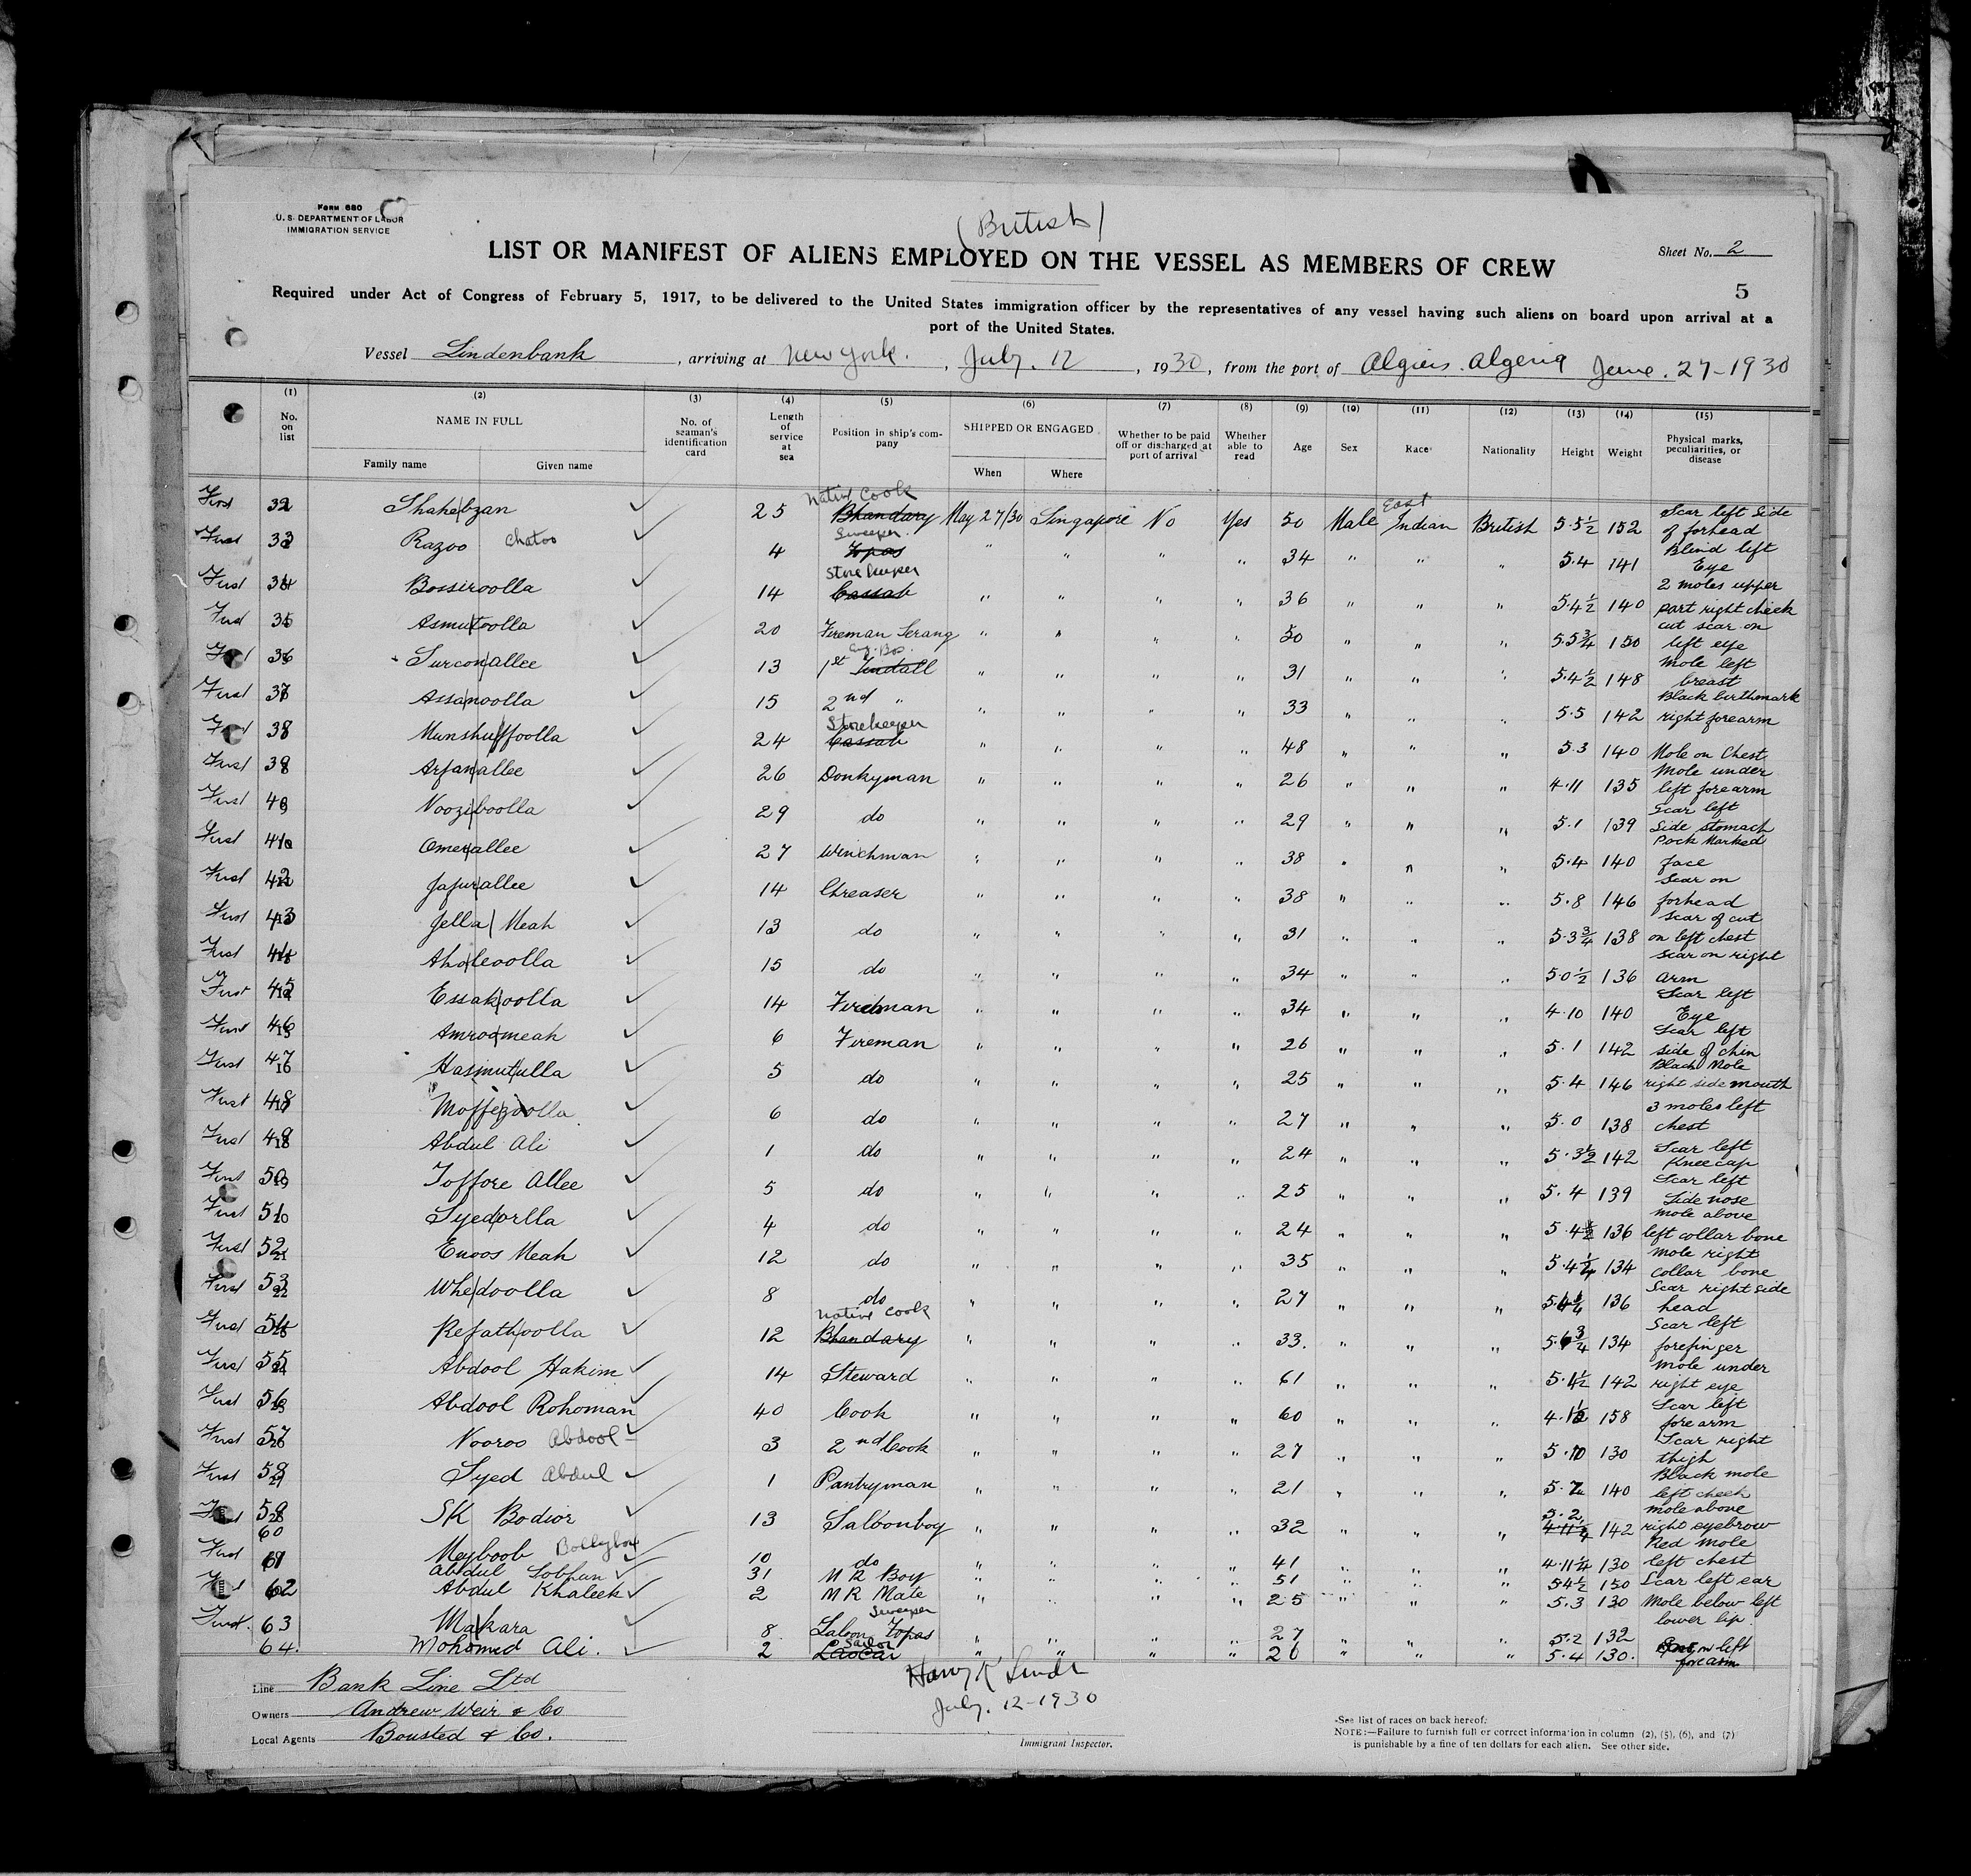 Form 680
U. S. DEPARTMENT OF LABOR
IMMIGRATION SERVICE
(British)
LIST OR MANIFEST OF ALIENS EMPLOYED ON THE VESSEL AS MEMBERS OF CREW
Sheet No. 2
5
Required under Act of Congress of February 5, 1917, to be delivered to the United States immigration officer by the representatives of any vessel having such aliens on board upon arrival at a
port of the United States.
Vessel Lindenbank, arriving at New York, July 12, 1930, from the port of Algiers Algeria June 27-1930
(1) (2) (3) (4) (5) (6) (7) (8) (9) (10) (11) (12) (13) (14) (15)
No. on list NAME IN FULL Family name Given name No. of seaman's identification card Length of service at sea Position in ship's company SHIPPED OR ENGAGED When Where Whether to be paid off or discharged at port of arrival Whether able to read Age Sex Race Nationality Height Weight Physical marks, peculiarities, or disease
First 32 Shahebzan 25 Native Cook Bhandary May 27/30 Singapore No Yes 50 Male East Indian British 5.5½ 152 Scar left side of forhead
First 33 Razoo Chatoo 4 Sweeper Topas " " " " 34 " " " 5.4 141 Blind left Eye
First 34 Bossiroolla 14 Storekeeper Cassab " " " " 36 " " " 5.4½ 140 2 moles upper part right cheek
First 35 Asmutoolla 20 Fireman Serang " " " " 50 " " " 5.5¾ 150 cut scar on left eye
First 36 Surconallee 13 1st Tindall " " " " 31 " " " 5.4½ 148 Mole left breast
First 37 Assanoolla 15 2nd " " " " " 33 " " " 5.5 142 Black birthmark right forearm
First 38 Munshuffoolla 24 Storekeeper Cassab " " " " 48 " " " 5.3 140 Mole on Chest
First 39 Arfanallee 26 Donkyman " " " " 26 " " " 4.11 135 Mole under left forearm
First 40 Nooziboolla 29 do " " " " 29 " " " 5.1 139 Scar left Side stomach
First 41 Omerallee 27 Winchman " " " " 38 " " " 5.4 140 Pock Marked face
First 42 Jafurallee 14 Greaser " " " " 38 " " " 5.8 146 Scar on forhead
First 43 Jella Meah 13 do " " " " 31 " " " 5.3¾ 138 Scar of cut on left chest
First 44 15 do " " " " 34 " " " 5.0½ 136 Scar on right arm
First 45 Essakoolla 14 Fireman " " " " 34 " " " 4.10 140 Scar left Eye
First 46 Amroomeah 6 Fireman " " " " 26 " " " 5.1 142 Scar left side of chin
First 47 Hasmutulla 5 do " " " " 25 " " " 5.4 146 Black Mole right side mouth
First 48 Moffezoolla 6 do " " " " 27 " " " 5.0 138 3 moles left chest
First 49 Abdul Ali 1 do " " " " 24 " " " 5.3½ 142 Scar left Kneecap
First 50 Toffore Allee 5 do " " " " 25 " " " 5.4 139 Scar left Side nose
First 51 Syedorlla 4 do " " " " 24 " " " 5.4½ 136 Mole above left collar bone
First 52 Enoos Meah 12 do " " " " 35 " " " 5.4¼ 134 Mole right collar bone
First 53 Whedoolla 8 do " " " " 27 " " " 136 Scar right side head
First 54 Refathoolla 12 Native Cook Bhandary " " " " 33 " " " 5.6¾ 134 Scar left forefinger
First 55 Abdool Hakim 14 Steward " " " " 61 " " " 5.1½ 142 Mole under right eye
First 56 Abdool Rohoman 40 Cook " " " " 60 " " " 158 Scar left forearm
First 57 Nooroo Abdool 3 2nd Cook " " " " 27 " " " 130 Scar right thigh
First 58 Syed Abdul 1 Pantryman " " " " 21 " " " 140 Black mole left cheek
First 59 SK Bodior 13 Saloonboy " " " " 32 " " " 5.2 4.11¼ 142 Mole above right eyebrow
60 Meyboob 10 do " " " " 41 " " " 4.11¼ 130 Red mole left chest
First 61 Abdul Sobhan 31 M R Boy " " " " 51 " " " 5.4½ 150 Scar left ear
First 62 Abdul Khaleek 2 M R Mate " " " " 25 " " " 5.3 130 Mole below left lower lip
First 63 Makara 8 Saloon Topas Sweeper " " " " 27 " " " 5.2 132
64. Mohomed Ali. 2 Lascar Sailor " " " " 26 " " " 5.4 130. on left forearm
Line Bank Line Ltd
Owners Andrew Weir & Co
Local Agents Bousted & Co.
Harry K
July. 12-1930
Immigrant Inspector.
See list of races on back hereof.
NOTE:—Failure to furnish full or correct information in column (2), (5), (6), and (7)
is punishable by a fine of ten dollars for each alien. See other side.